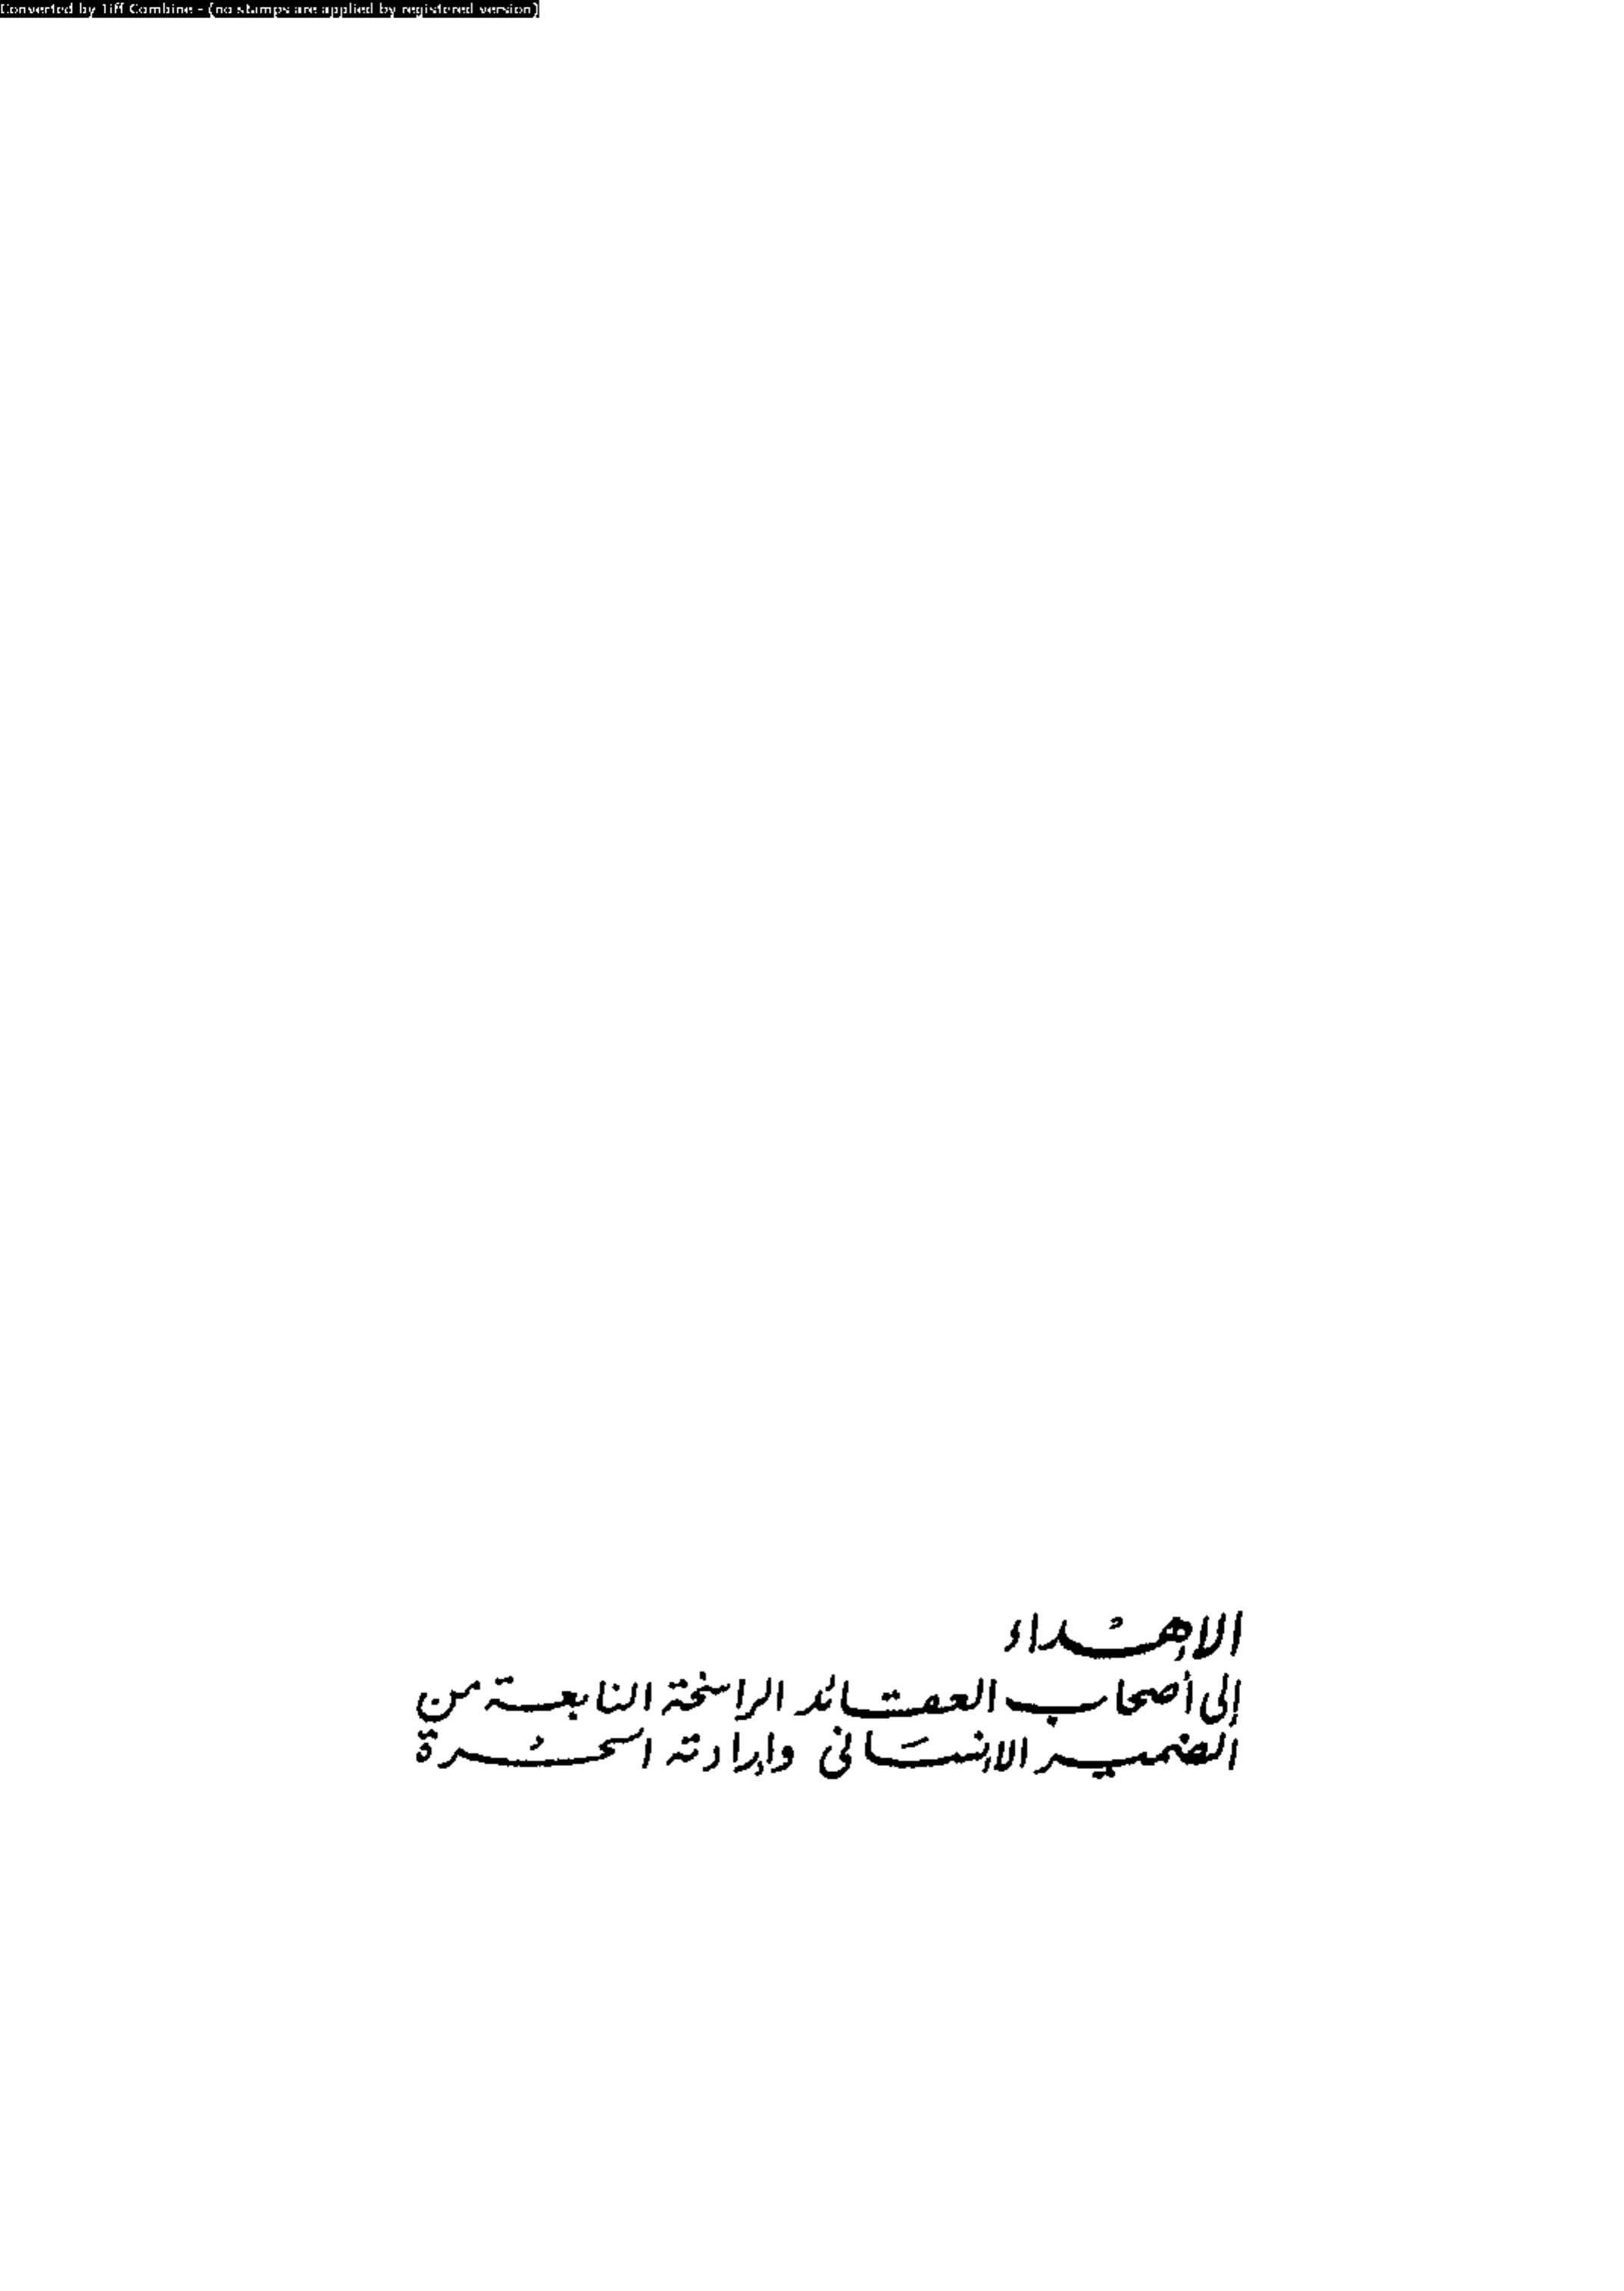 Converted by Tiff Combine - (no stamps are applied by registered version)
الإهداء
إلى أصحاب العقائد الراسخة النابعة من
الضمير الإنسانى وإرادته الحرة